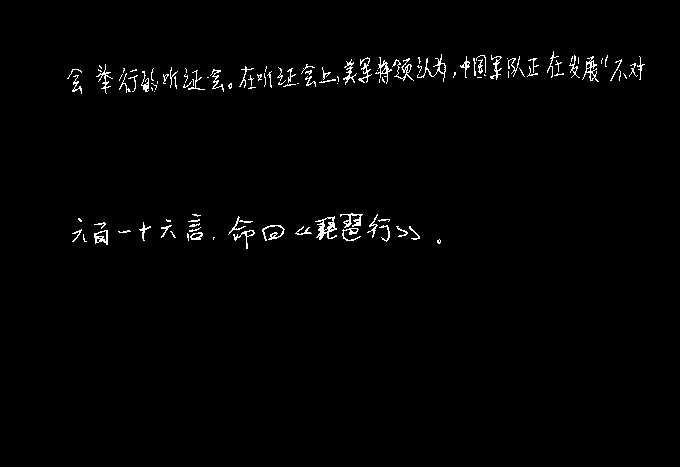 会举行的听证会。在听证会上,美军将领认为,中国军队正在发展“不对
六百一十六言,命曰《琵琶行》。